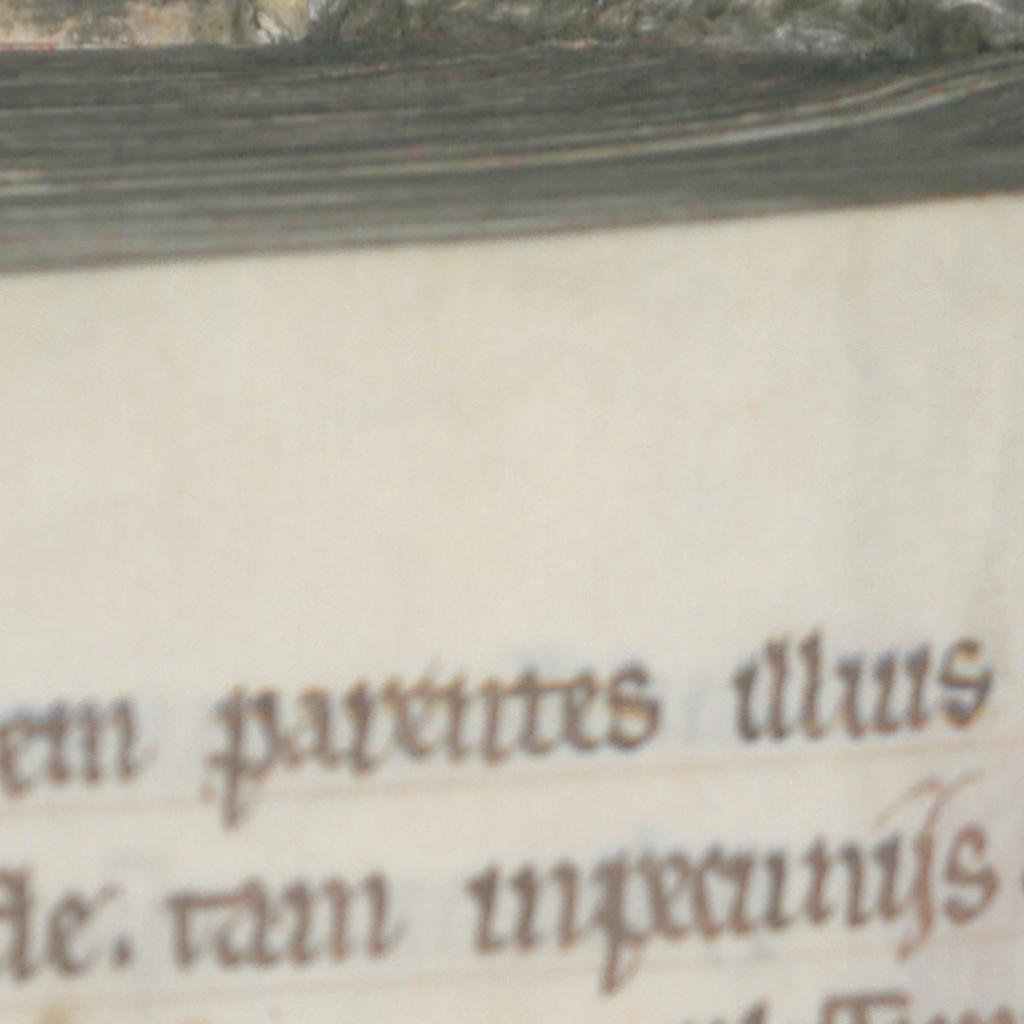 em parentes illius
de. tam inpecuniis